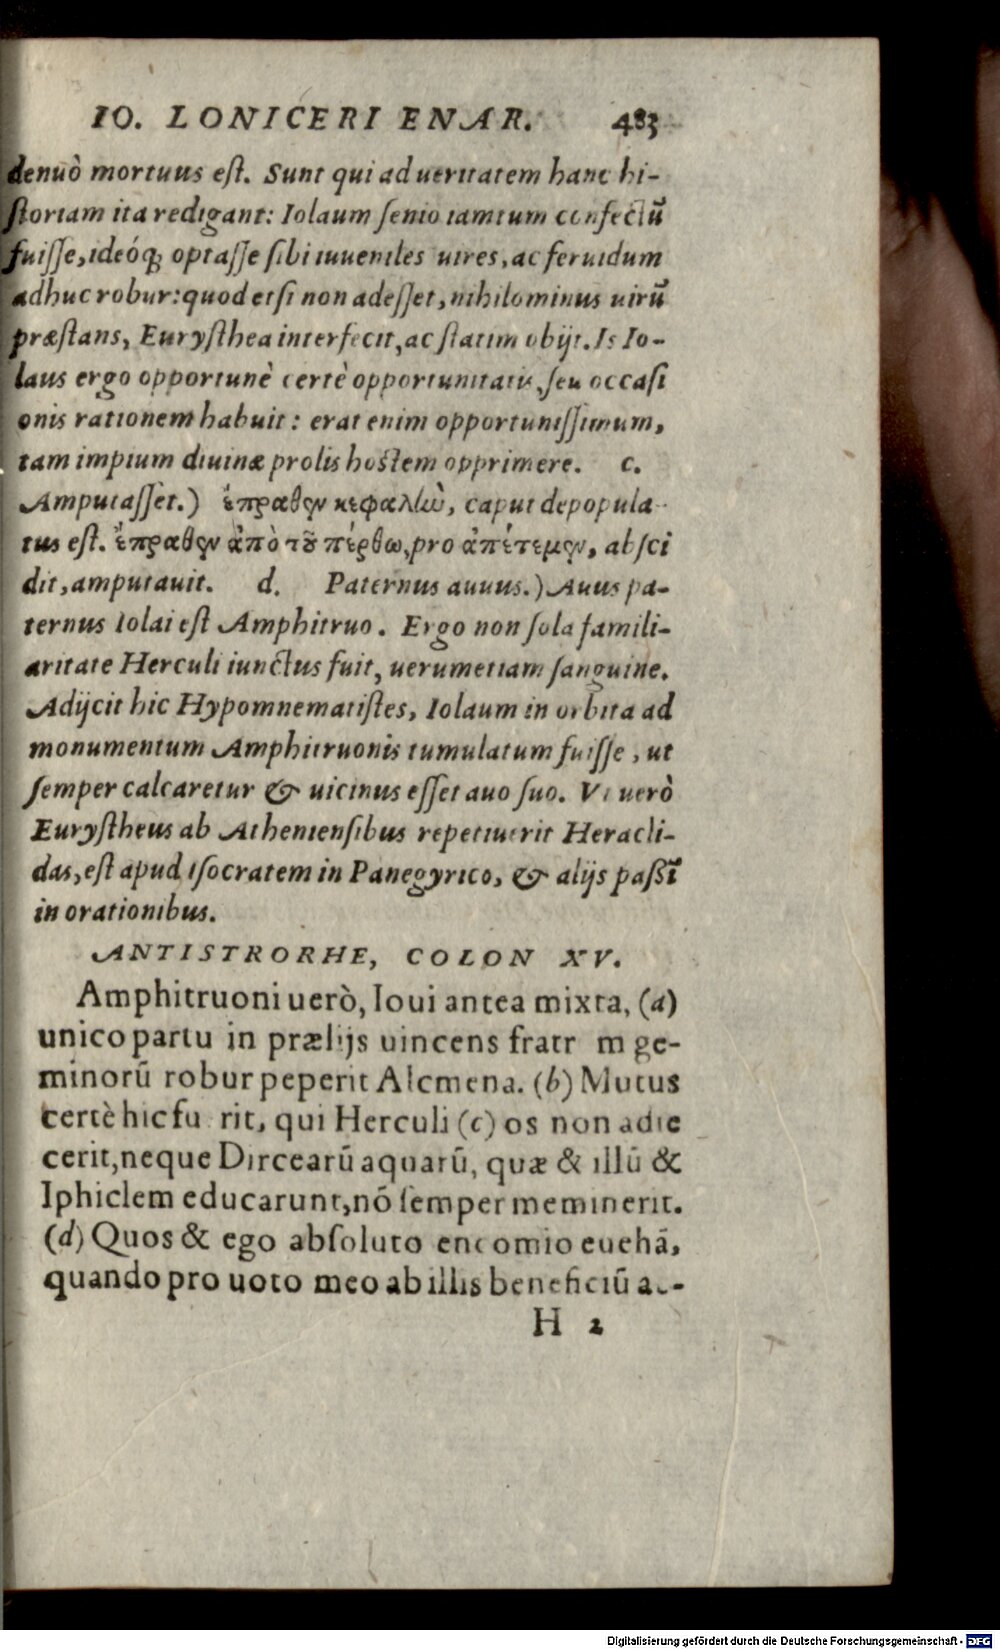 IO. LONICERI ENAR. 483
denuò mortuus eſt. Sunt qui ad ueritatem hanc hi-
ſtoriam ita redigant: Iolaum ſenio tamtum confectũ
fuiſſe, ideóq; optaſſe ſibi iuueniles uires, ac feruidum
adhuc robur: quod etſi non adeſſet, nihilominus uirũ
præſtans, Euryſthea interfecit, ac ſtatim obijt. Is Io-
laus ergo opportunè certè opportunitatis, ſeu occaſi
onis rationem habuit: erat enim opportuniſſimum,
tam impium diuinæ prolis hoſtem opprimere. c.
Amputaſſet.) ἔπραθεν κεφαλὼ, caput depopula-
tus eſt. ἔπραθεν ἀπὸ τοῦ πέρθω, pro ἀπέτεμεν, abſci
dit, amputauit. d. Paternus auuus.) Auus pa-
ternus Iolai eſt Amphitruo. Ergo non ſola famili-
aritate Herculi iunctus fuit, uerumetiam ſanguine.
Adijcit hic Hypomnematiſtes, Iolaum in orbita ad
monumentum Amphitruonis tumulatum fuiſſe, ut
ſemper calcaretur & uicinus eſſet auo ſuo. Vt uerò
Euryſtheus ab Athenienſibus repetiuerit Heracli-
das, eſt apud Iſocratem in Panegyrico, & alijs paſſĩ
in orationibus.
ANTISTRORHE, COLON XV.
Amphitruoni uerò, Ioui antea mixta, (a)
unico partu in prælijs uincens fratr m ge-
minorũ robur peperit Alcmena. (b) Mutus
certè hic fu rit, qui Herculi (c) os non adie
cerit, neque Dircearũ aquarũ, quæ & illũ &
Iphiclem educarunt, nõ ſemper meminerit.
(d) Quos & ego abſoluto encomio euehã,
quando pro uoto meo ab illis beneficiũ ac-
H 2
Digitalisierung gefördert durch die Deutsche Forschungsgemeinschaft - DFG